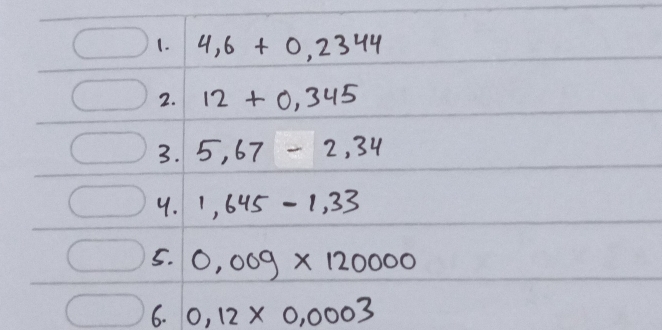 1. 4,6 + 0,2344
2. 12 + 0,345
3. 5,67 - 2,34
4. 1,645 - 1,33
5. 0,009 × 120000
6. 0,12 × 0,0003